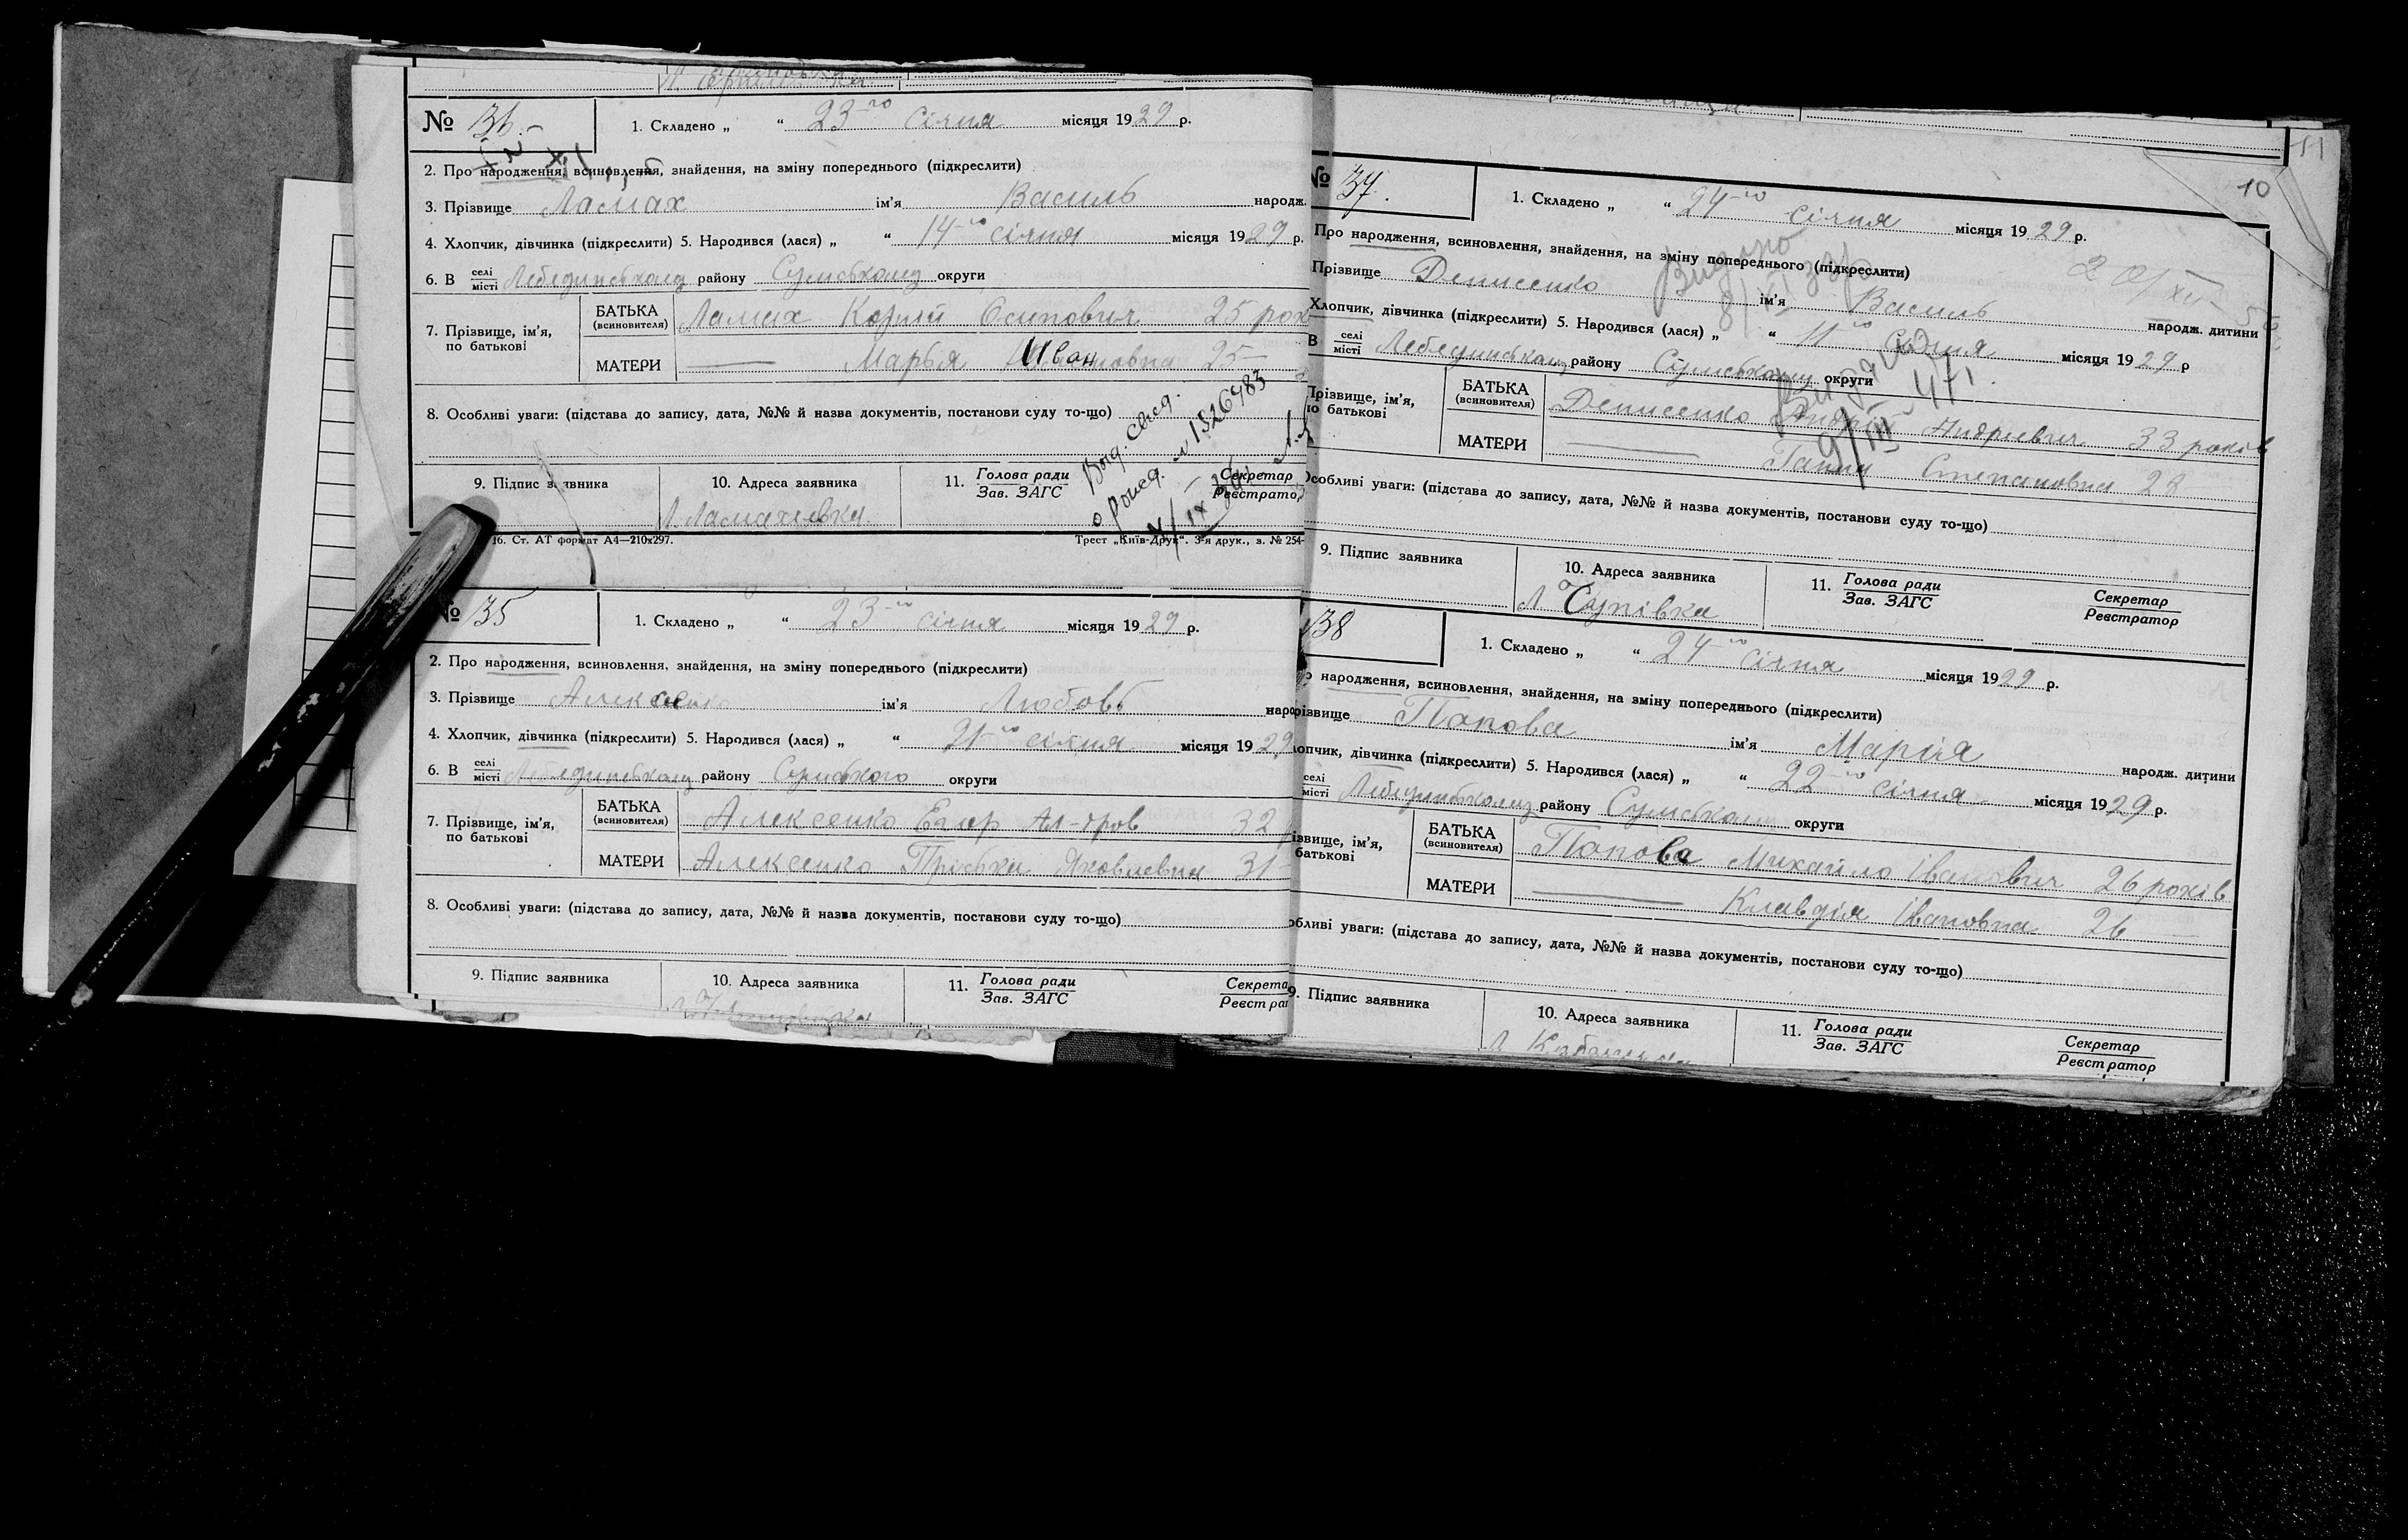 № 36.-
1. Складено „ “ 23-го січня місяця 1929 р.
2. Про народження, всиновлення, знайдення, на зміну попереднього (підкреслити)
3. Прізвище Ламах ім'я Василь народж.
4. Хлопчик, дівчинка (підкреслити) 5. Народився (лася) „ “ 14-го січня місяця 1929 р.
6. В селі місті Лебединському району Сумському округи
7. Прізвище, ім'я, по батькові
БАТЬКА (всиновителя) Ламах Козмій Осипович 25 рок
МАТЕРИ — Марья 25 —
8. Особливі уваги: (підстава до запису, дата, №№ й назва документів, постанови суду то-що)
Выд. свид.
о рожд. № 1526483
9. Підпис заявника 10. Адреса заявника 11. Голова ради Зав. ЗАГС Секретар Реєстратор
Л. Ламахівка.
16. Ст. АТ формат А4—210х297. Трест „Київ-Друк“. 3-я друк., з. № 254-
№ 35
1. Складено „ “ 23-го січня місяця 1929 р.
2. Про народження, всиновлення, знайдення, на зміну попереднього (підкреслити)
3. Прізвище Алексенко ім'я Любовь наро
4. Хлопчик, дівчинка (підкреслити) 5. Народився (лася) „ “ 21-го січня місяця 1929
6. В селі місті Лебединському району Сумського округи
7. Прізвище, ім'я, по батькові
БАТЬКА (всиновителя) Алексенко Егор Ал-дров 32
МАТЕРИ Алексенко Пріська Яковлевна 31
8. Особливі уваги: (підстава до запису, дата, №№ й назва документів, постанови суду то-що)
9. Підпис заявника 10. Адреса заявника 11. Голова ради Зав. ЗАГС Секрета Реєстра
51
10
№ 37.
1. Складено „ “ 24-го січня місяця 1929 р.
Про народження, всиновлення, знайдення, на зміну попереднього (підкреслити)
Прізвище Денисенко ім'я Василь народж. дитини
Хлопчик, дівчинка (підкреслити) 5. Народився (лася) „ “ 11-го січня місяця 1929 р
В селі місті Лебединському району Сумському округи
Прізвище, ім'я, по батькові
БАТЬКА (всиновителя) Денисенко Андрій Андрієвич 33 років
МАТЕРИ — Ганна Степановна 28
Особливі уваги: (підстава до запису, дата, №№ й назва документів, постанови суду то-що)
9. Підпис заявника 10. Адреса заявника 11. Голова ради Зав. ЗАГС Секретар Реєстратор
38
1. Складено „ “ 24-го січня місяця 1929 р.
народження, всиновлення, знайдення, на зміну попереднього (підкреслити)
різвище Попова ім'я Марія народж. дитини
лопчик, дівчинка (підкреслити) 5. Народився (лася) „ “ 22-го січня місяця 1929 р.
селі місті Лебединському району Сумському округи
ізвище, ім'я, батькові
БАТЬКА (всиновителя) Попова Михайло Іванович 26 років
МАТЕРИ — Клавдія Івановна 26 —
обливі уваги: (підстава до запису, дата, №№ й назва документів, постанови суду то-що)
9. Підпис заявника 10. Адреса заявника 11. Голова ради Зав. ЗАГС Секретар Реєстратор